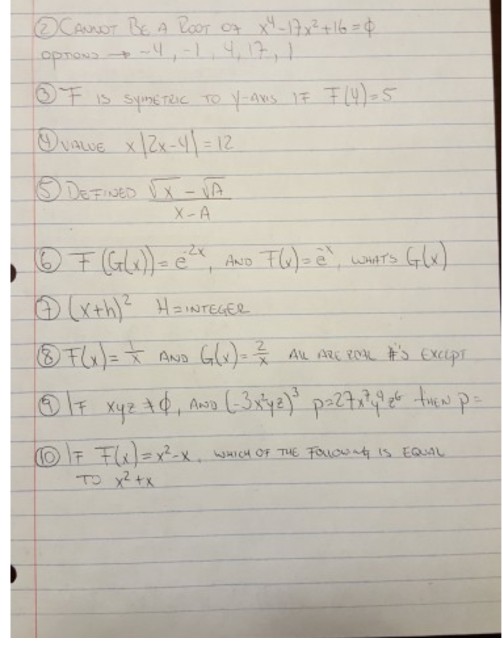 ② CANNOT BE A ROOT OF x⁴-17x²+16=∅
OPTIONS → -4, -1, 4, 17, 1
③ F IS SYMETRIC TO Y-AXIS IF F(4)=5
④ VALUE x|2x-4|=12
⑤ DEFINED √x - √A
x-A
⑥ F(G(x))=e^-2x, AND F(x)=e^-x, WHATS G(x)
⑦ (x+h)² H=INTEGER
⑧ F(x)=1/x AND G(x)=2/x ALL ARE REAL #'S EXCEPT
⑨ IF xyz≠∅, AND (-3x²yz)³ p=27x⁷y⁹z⁶ THEN p=
⑩ IF F(x)=x²-x, WHICH OF THE FOLLOWING IS EQUAL
TO x²+x